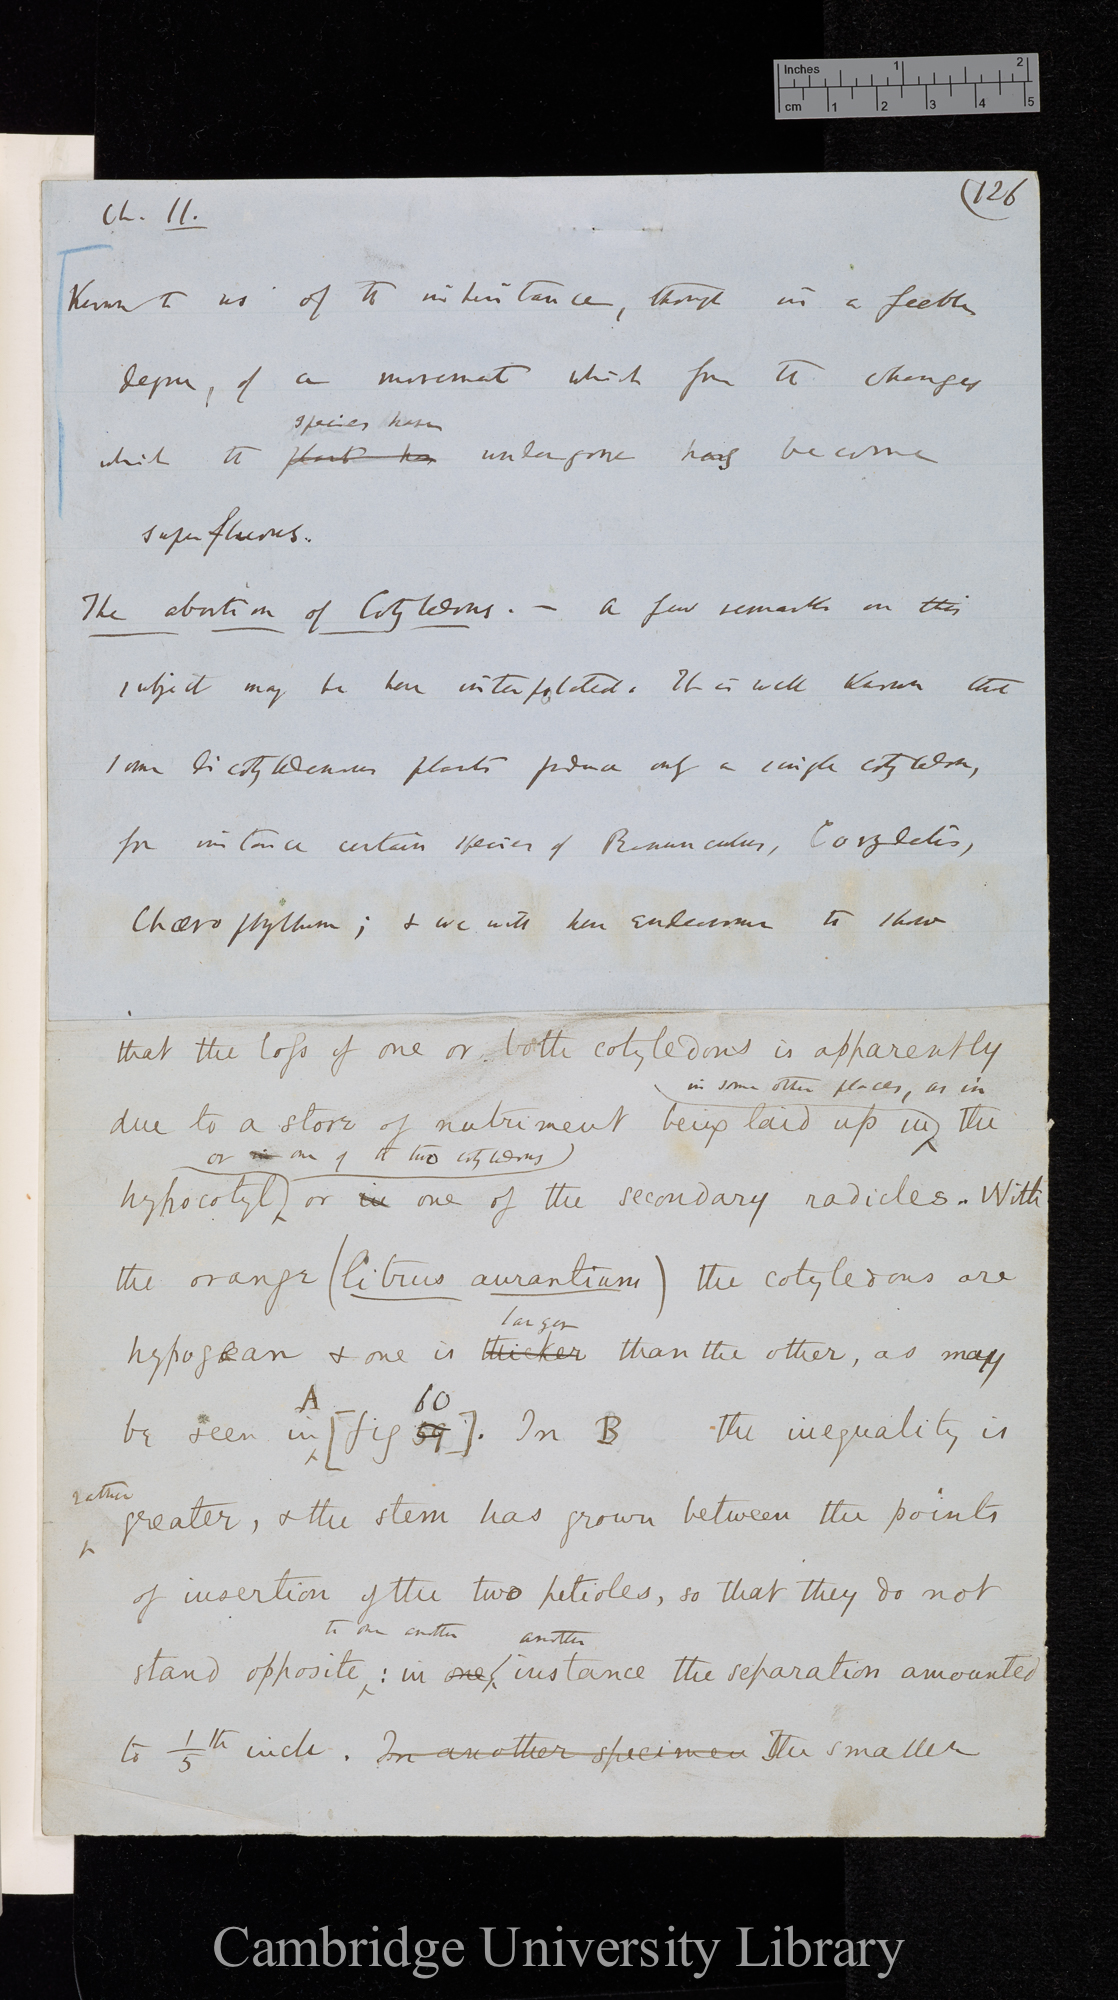 Inches 1 2
cm 1 2 3 4 5
(126
Ch. II.
Known to us of the inheritance, though in a feeble
degree, of a movement which from the changes
species have
which the plant has undergone has become
superfluous.
The abortion of Cotyledons. — A few remarks on this
subject may be here interpolated. It is well known that
some dicotyledonous plants produce only a single cotyledon,
for instance certain species of Ranunculus, Corydalis,
Chærophyllum; & we will here endeavour to show
that the loss of one or both cotyledons is apparently
in some other places, as in
due to a store of nutriment being laid up in the
or in one of the two cotyledons)
hypocotyl) or in one of the secondary radicles. With
the orange (Citrus aurantium) the cotyledons are
larger
hypogean & one is thicker than the other, as may
A 60
be seen in [fig 59]. In B the inequality is
rather
greater, & the stem has grown between the points
of insertion of the two petioles, so that they do not
to one another another
stand opposite : in one instance the separation amounted
to 1/5th inch. In another specimen The smaller
Cambridge University Library